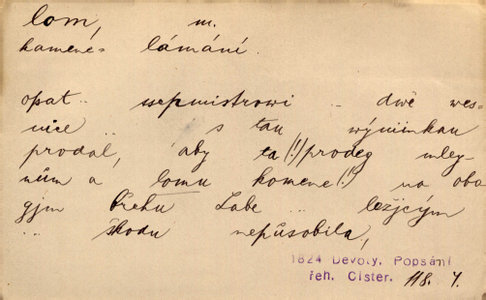 lom, m.
kamene- lámání.
opat .. sepmistrowi .. dwě wes-
nice .. s tau wýminkau
prodal, aby ta (!) prodeg mley-
nům a lomu kamene (!) na oba
gjm břehu Labe ... ležjcým
... škodu nepůsobila,
1824 Devoty, Popsání
řeh. Cister. 118. 7.